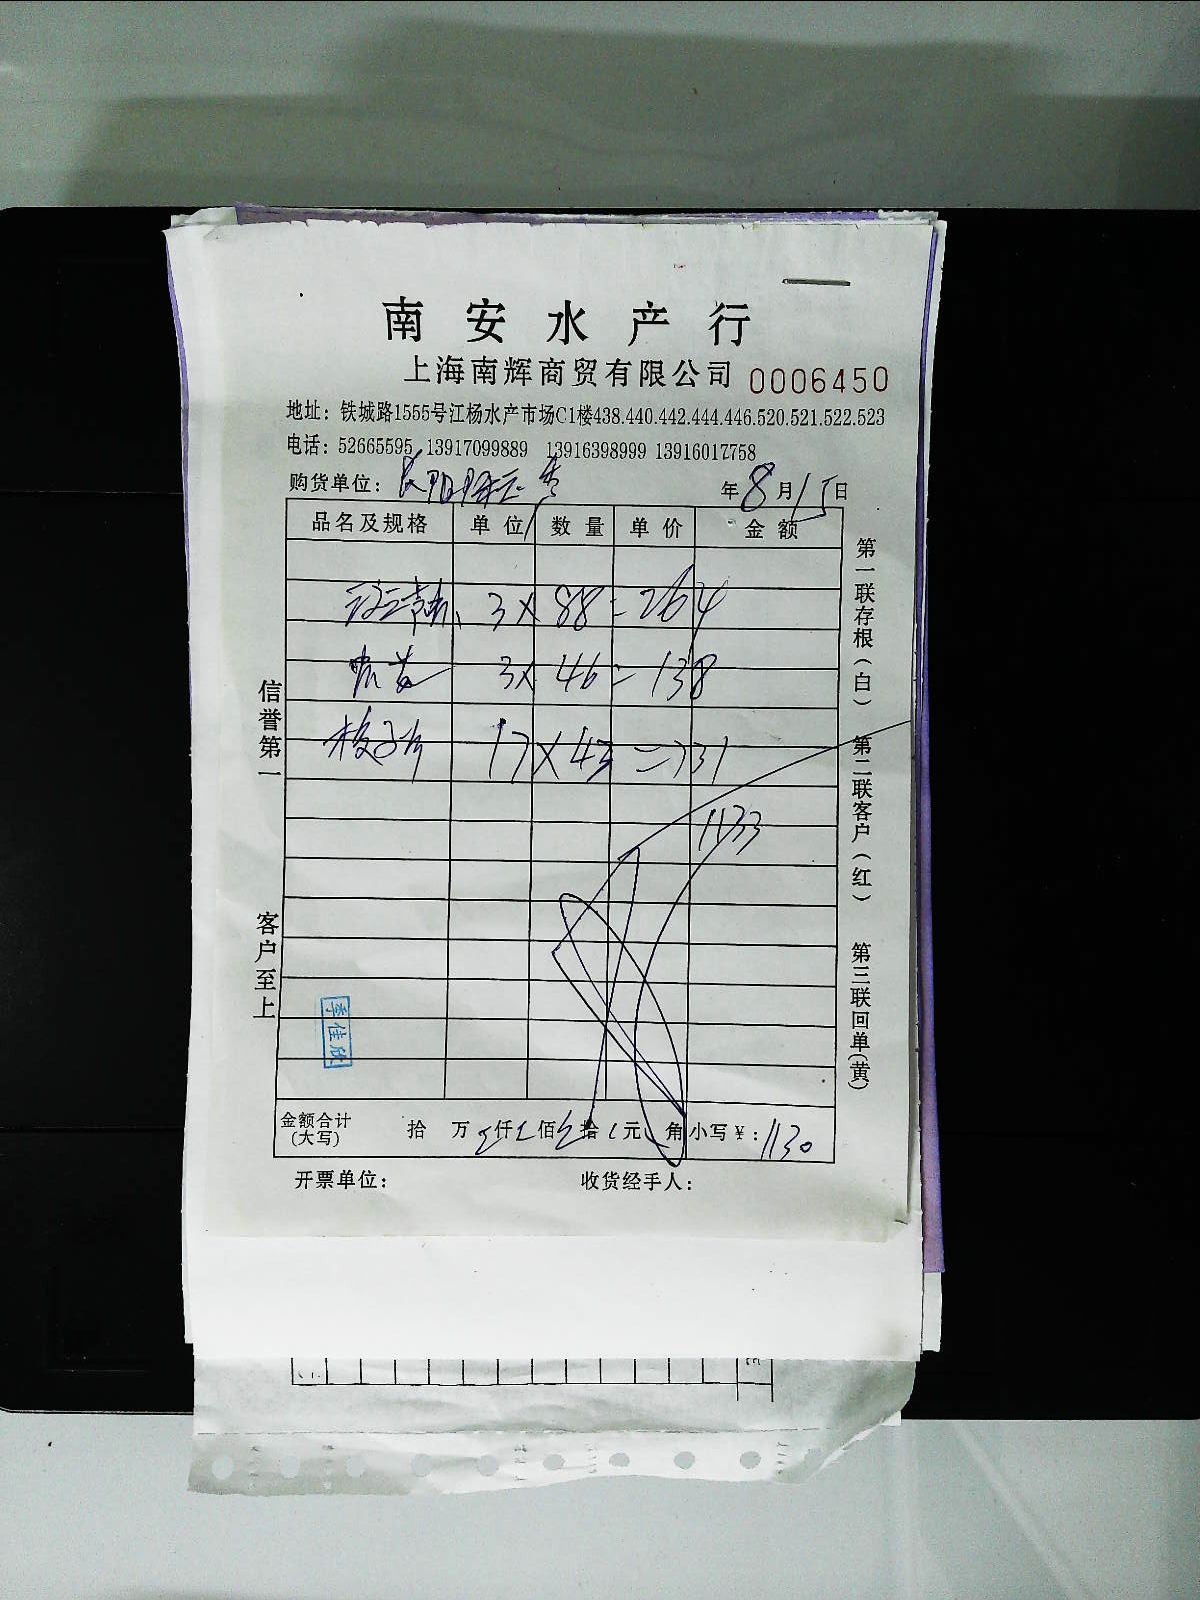 南安水产行
上海南辉商贸有限公司 0006450
地址：铁城路1555号江杨水产市场C1楼438.440.442.444.446.520.521.522.523
电话：52665595 13917099889 13916398999 13916017758
购货单位： 年 8 月 15 日
品名及规格 单位 数量 单价 金额
3 X 88 = 264
3 X 46 = 138
梭子 17 X 43 = 731
1133
金额合计(大写) 拾 万 仟 佰 拾 元 角 小写￥：1130
开票单位： 收货经手人：
信誉第一
客户至上
第一联存根（白）
第二联客户（红）
第三联回单(黄)
李佳欣